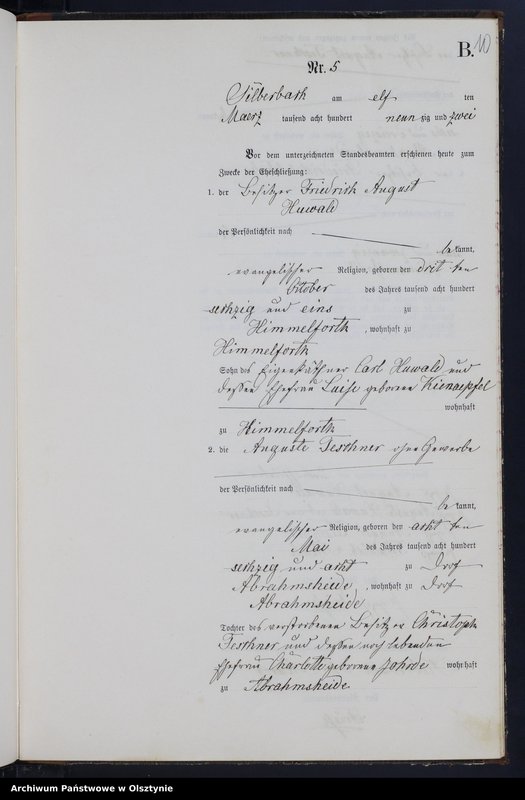 B. 10
Nr. 5
Silberbach am elf ten
Maerz tausend acht hundert neun zig und zwei
Vor dem unterzeichneten Standesbeamten erschienen heute zum
Zwecke der Eheschließung:
1. der Besitzer Friedrich August
Huwald
der Persönlichkeit nach
be kannt,
evangelischer Religion, geboren den drit ten
October des Jahres tausend acht hundert
sechzig und eins zu
Himmelforth, wohnhaft zu
Himmelforth
Sohn des Eigenkäthner Carl Huwald und
dessen Ehefrau Luise geborene Kienapfel
wohnhaft
zu Himmelforth
2. die Auguste Teschner ohne Gewerbe
der Persönlichkeit nach
be kannt,
evangelischer Religion, geboren den acht ten
Mai des Jahres tausend acht hundert
sechzig und acht zu Dorf
Abrahmsheide, wohnhaft zu Dorf
Abrahmsheide
Tochter des verstorbenen Besitzer Christoph
Teschner und dessen noch lebenden
Ehefrau Charlotte geborene Jahrde wohnhaft
zu Abrahmsheide
Archiwum Państwowe w Olsztynie